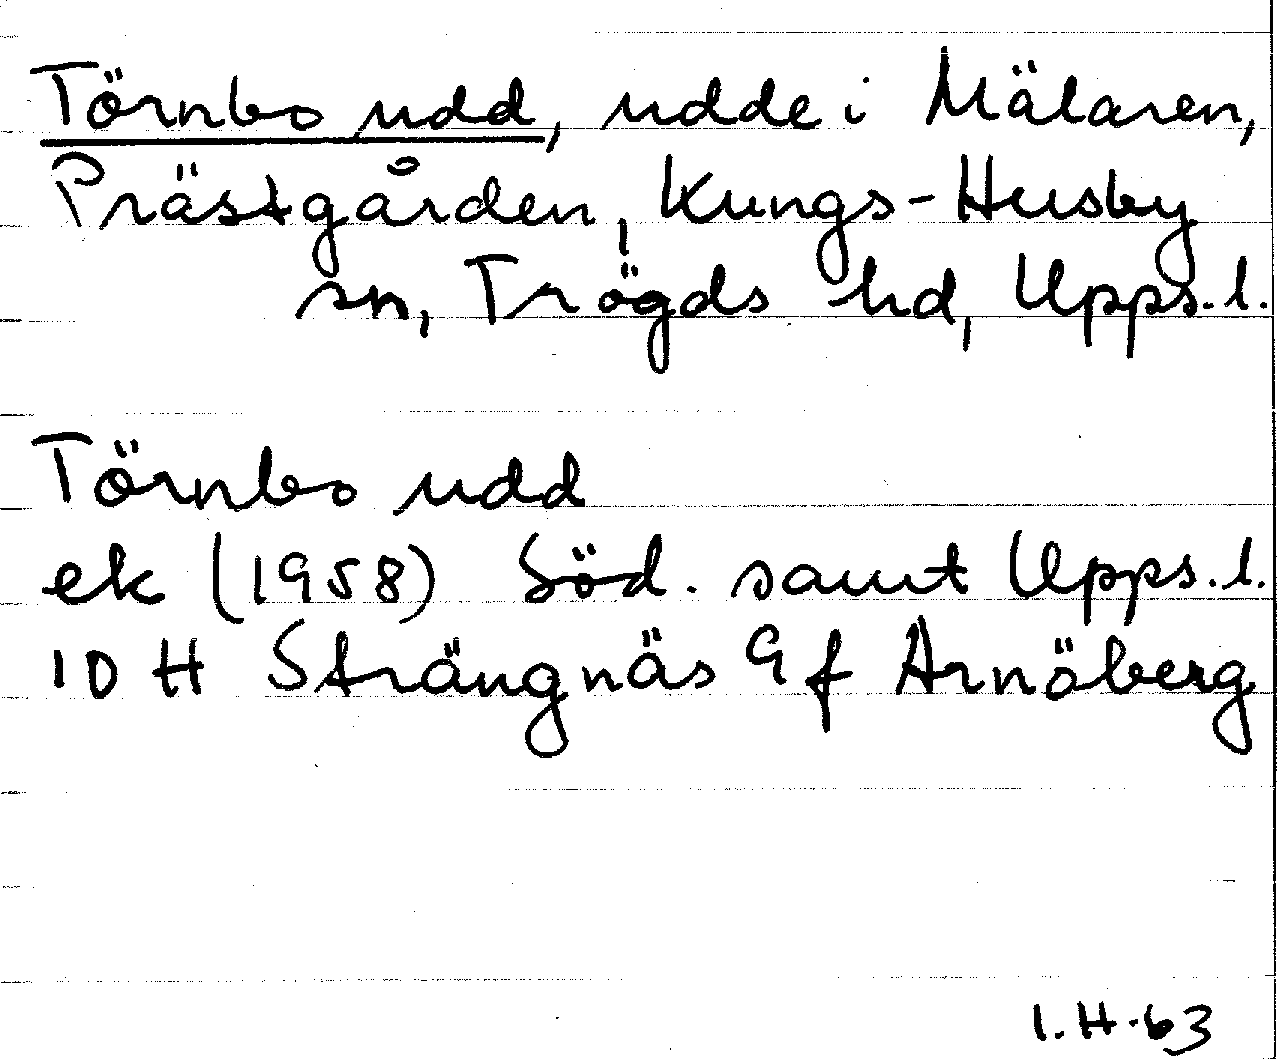 Törnbo udd, udde i Mälaren,
Prästgården, Kungs-Husby
sn, Trögds hd, Upps. l.
Törnbo udd
ek (1958) Söd. samt Upps. l.
10 H Strängnäs 9 f Arnöberg
I. H-63